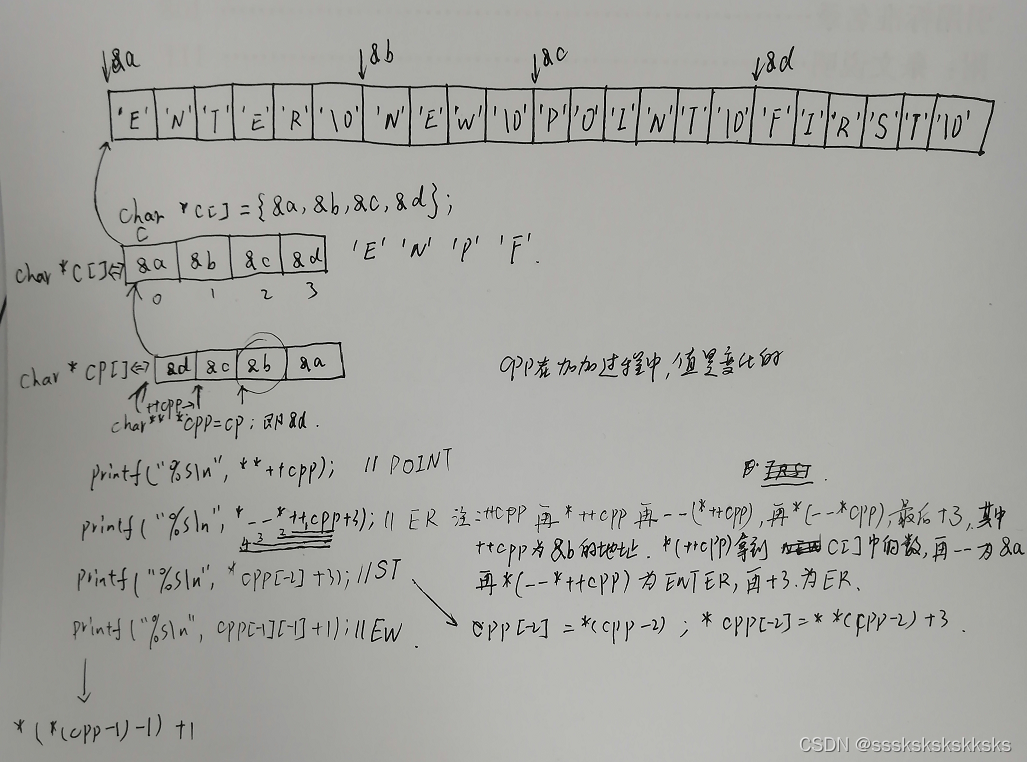 ↓&a ↓&b ↓&c ↓&d
'E' 'N' 'T' 'E' 'R' '\0' 'N' 'E' 'W' '\0' 'P' 'O' 'I' 'N' 'T' '\0' 'F' 'I' 'R' 'S' 'T' '\0'
char *C[] = {&a, &b, &c, &d};
C
char *C[]⇔ &a &b &c &d 'E' 'N' 'P' 'F'.
0 1 2 3
char* CP[]⇔ &d &c &b &a
cpp在加加过程中,值是变化的
++cpp→
char** *cpp=cp; 即&d.
printf("%s\n", **++cpp); // POINT
printf("%s\n", *--*++cpp+3); // ER 注:++cpp 再*++cpp 再--(*++cpp), 再*(--*cpp), 最后+3, 其中
4 3 2 1
++cpp为&b的地址. *(++cpp)拿到 C[]中的数, 再--为&a
再*(--*++cpp)为ENTER, 再+3.为ER.
printf("%s\n", *cpp[-2]+3); //ST
cpp[-2] = *(cpp-2) ; *cpp[-2]=**(cpp-2)+3.
printf("%s\n", cpp[-1][-1]+1); //EW.
*(*(cpp-1)-1)+1
CSDN @sssksksksksksks